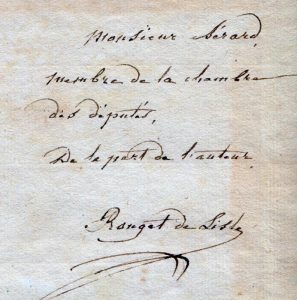 Monsieur Sérard,
membre de la chambre
des députés,
De la part de l'auteur.
Rouget de Lisle